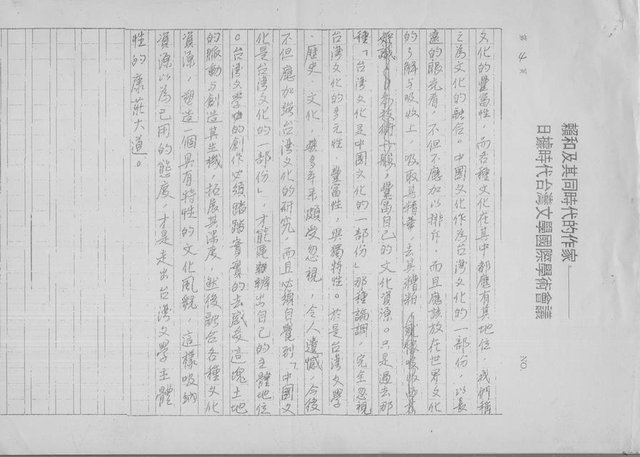 賴和及其同時代的作家——
日據時代台灣文學國際學術會議
NO.
第 4 頁
文化的豐富性，而各種文化在其中都應有其地位，我們稱
之為文化的融合。中國文化作為台灣文化的一部份，以長
遠的眼光看，不但不應加以排斥，而且應該放在世界文化
的了解與吸收上，吸取其精華，去其糟粕，
豐富自己的文化資源。只是過去那
種「台灣文化是中國文化的一部份」那種論調，完全忽視
台灣文化的多元性，豐富性，與獨特性。於是台灣文學
、歷史、文化，幾多年來頗受忽視，令人遺憾，今後
不但應加強台灣文化的研究，而且必須自覺到「中國文
化是台灣文化的一部份」，才能逐漸辨出自己的主體地位
。台灣文學的創作必須踏踏實實的去感受這塊土地
的脈動，創造其生機，拓展其深度，然後融合各種文化
資源，塑造一個具有特性的文化風貌，這樣吸納
資源以為己用的態度，才是走出台灣文學主體
性的康莊大道。